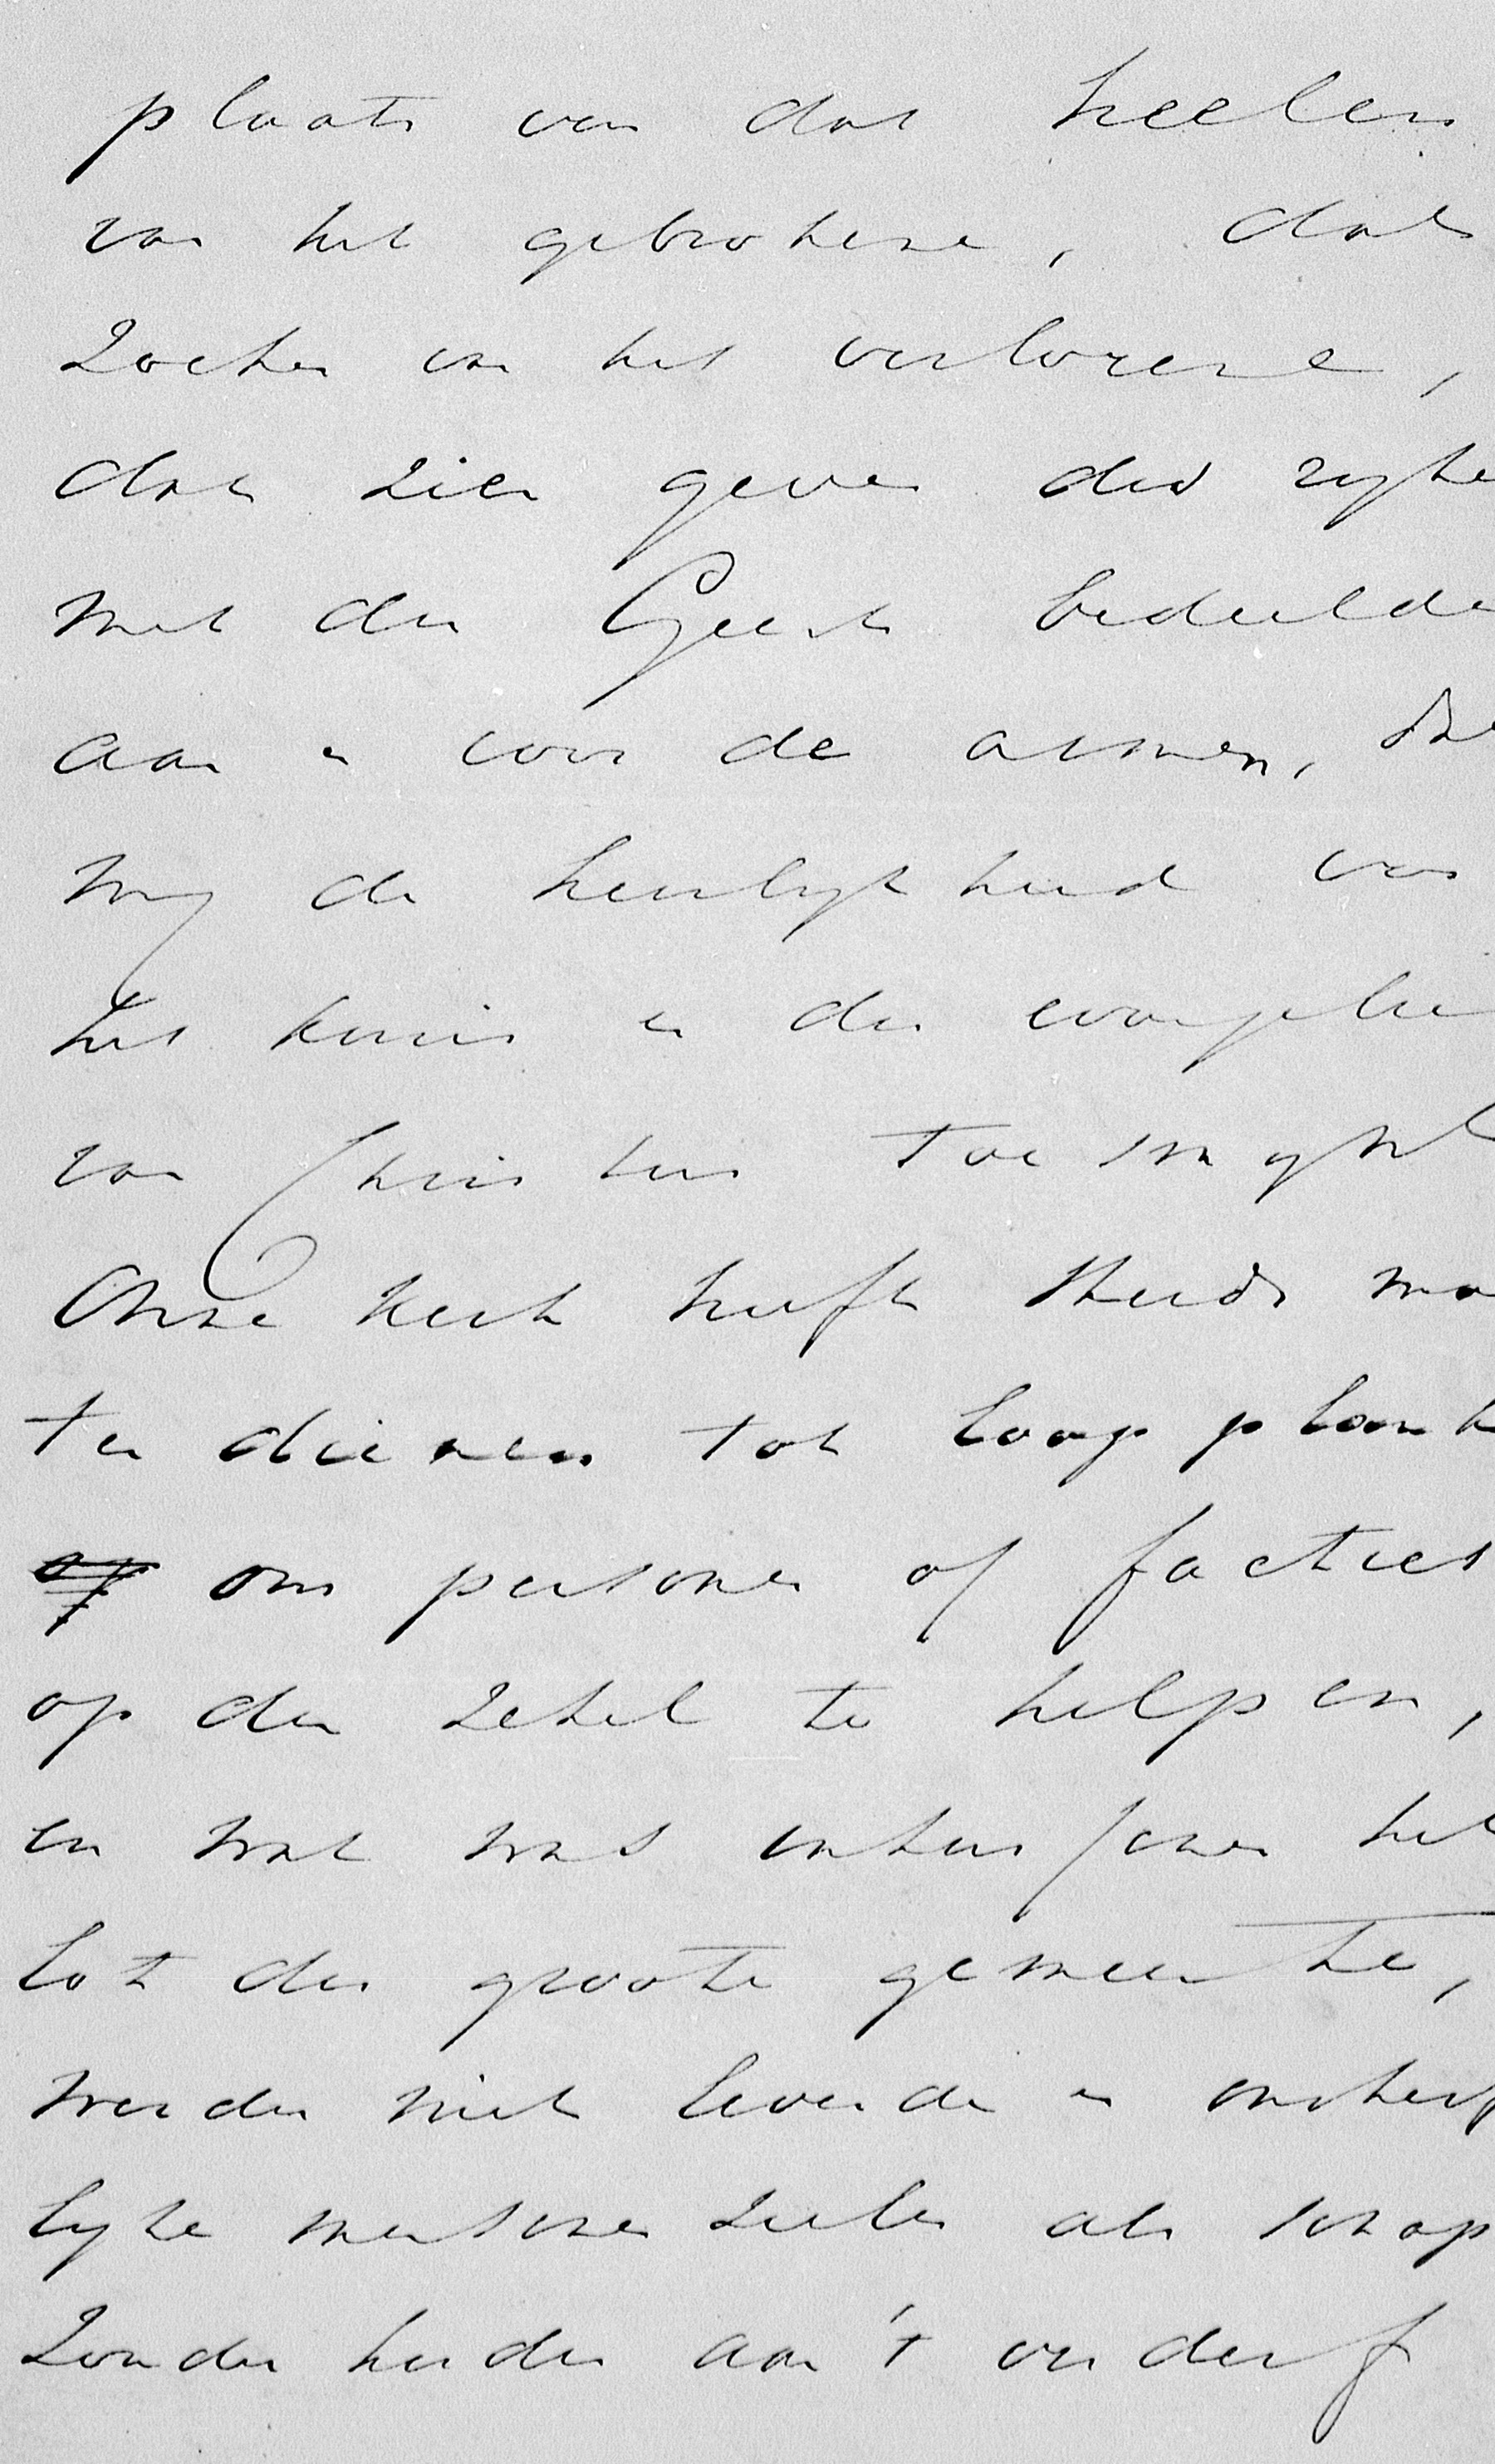 plaats van dat heelen
van het gebrokene, dat
zoeken van het verlorene,
dat zien geven der rijke
met den Geest bedeelde
aan en voor de armen, die
mij de heerlijkheid van
het kruis en der evangelie
van Christus toeschijnt
Onze kerk heeft steeds moe
ten dienen tot loopplank
om personen of facties
op den zetel te helpen,
en wat was intusschen het
lot der groote gemeente,
werden niet levende en onsterf
lijke menschen zielen als schap
zonder herder aan 't verderf